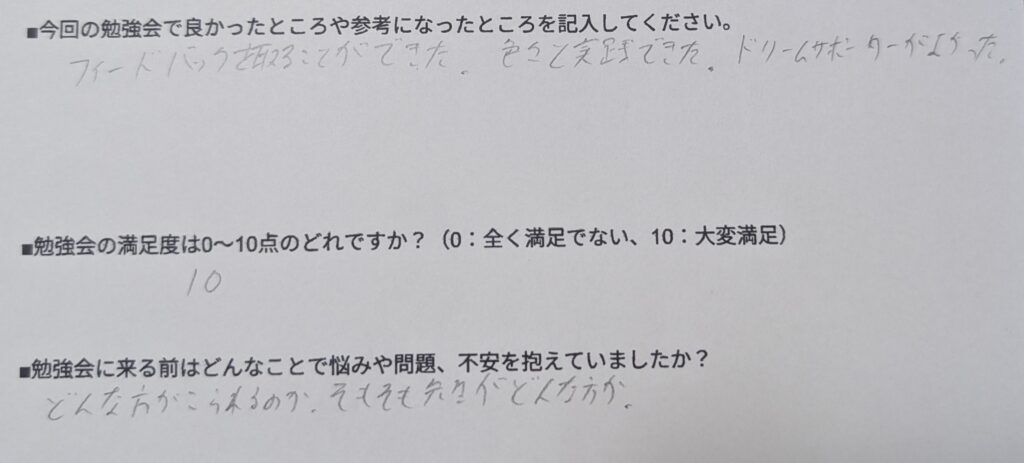 ■今回の勉強会で良かったところや参考になったところを記入してください。
フィードバックを取ることができた。色々と実践できた。ドリームサポーターがよかった。
■勉強会の満足度は0～10点のどれですか？（0：全く満足でない、10：大変満足）
10
■勉強会に来る前はどんなことで悩みや問題、不安を抱えていましたか？
どんな方がこられるのか。そもそも先生がどんな方か。